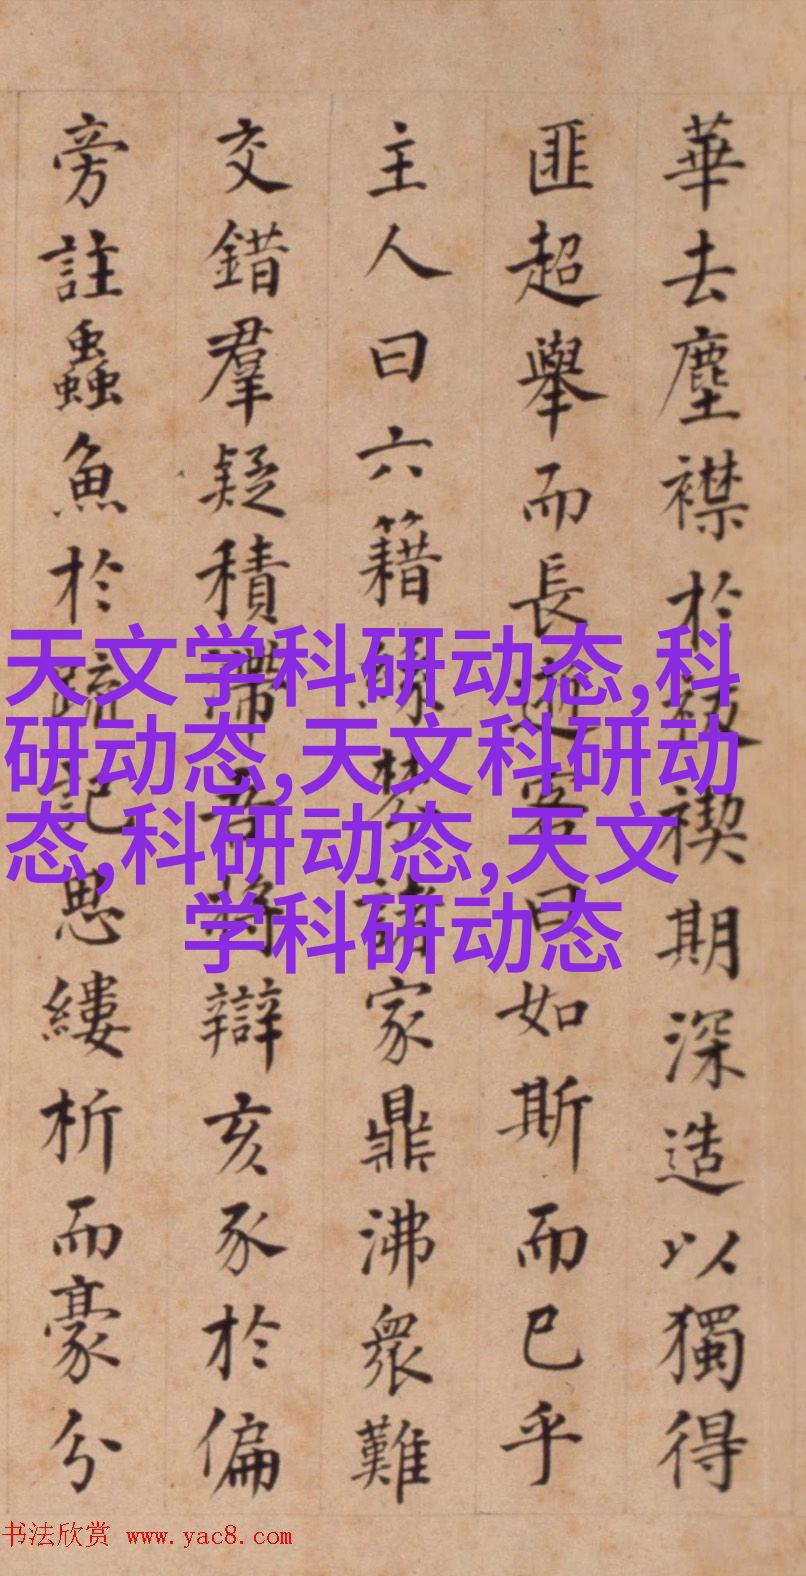 華去塵襟於祓禊期深造以獨得
匪超舉而長逝客曰如斯而已乎
主人曰六籍緣禁諸家鼎沸眾難
交錯羣疑積滯吾將辯亥豕於偏
旁註蟲魚於疏記思縷析而豪分
天文学科研动态,科
研动态,天文科研动
态,科研动态,天文
学科研动态
书法欣赏 www.yac8.com